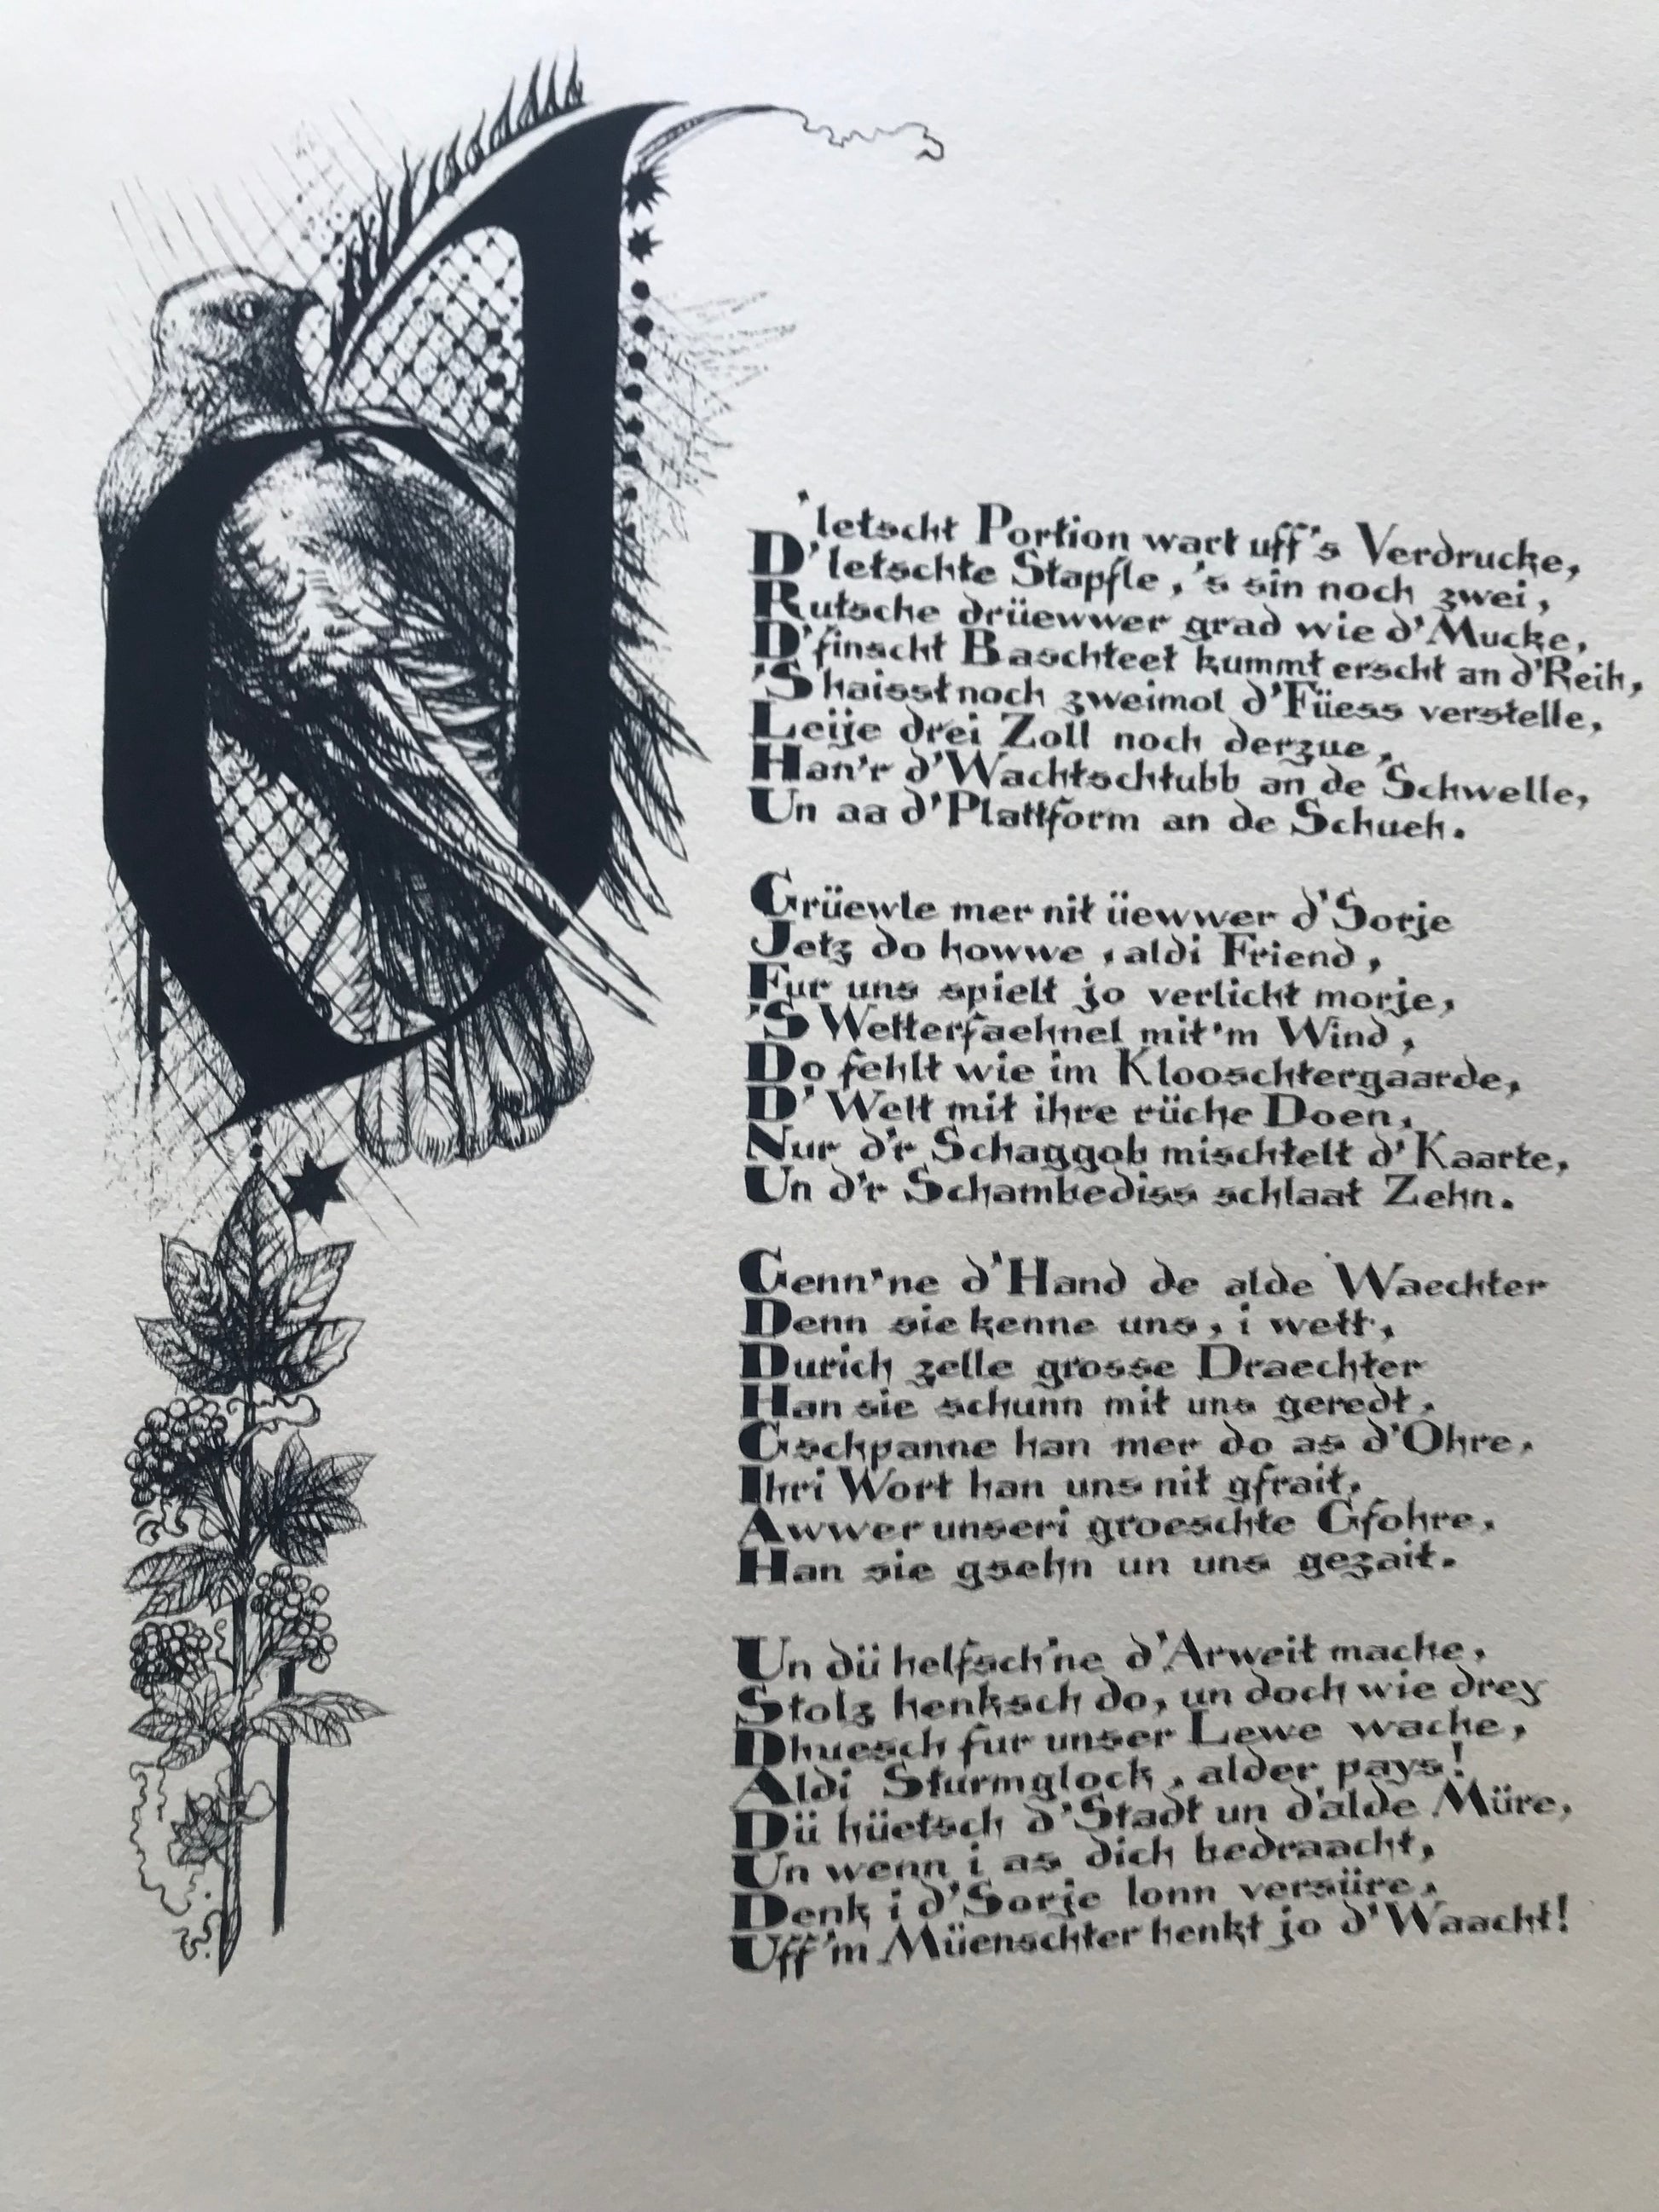 d'letscht Portion wart uff's Verdrucke,
D'letschte Stapfle, 's sin noch zwei,
Rutsche drüewwer grad wie d'Mucke,
D'finscht Baschteet kummt erscht an d'Reih,
'S haisst noch zweimol d'Füess verstelle,
Leije drei Zoll noch derzue,
Han'r d'Wachtschtubb an de Schwelle,
Un aa d'Plattform an de Schueh.
Grüewle mer nit üewwer d'Sorje
Jetz do howwe, aldi Friend,
Fur uns spielt jo verlicht morje,
'S Wetterfaehnel mit'm Wind,
Do fehlt wie im Klooschtergaarde,
D'Welt mit ihre rüche Doen,
Nur d'r Schaggob mischtelt d'Kaarte,
Un d'r Schambediss schlaat Zehn.
Genn'ne d'Hand de alde Waechter
Denn sie kenne uns, i wett,
Durich zelle grosse Draechter
Han sie schunn mit uns geredt,
Gschpanne han mer do as d'Ohre,
Ihri Wort han uns nit gfrait,
Awwer unseri groeschte Gfohre,
Han sie gsehn un uns gezait.
Un dü helfsch'ne d'Arweit mache,
Stolz henksch do, un doch wie drey
Dhuesch fur unser Lewe wache,
Aldi Sturmglock, alder pays!
Dü hüetsch d'Stadt un d'alde Müre,
Un wenn i as dich bedraacht,
Denk i d'Sorje lonn versüre,
Uff'm Müenschter henkt jo d'Waacht!